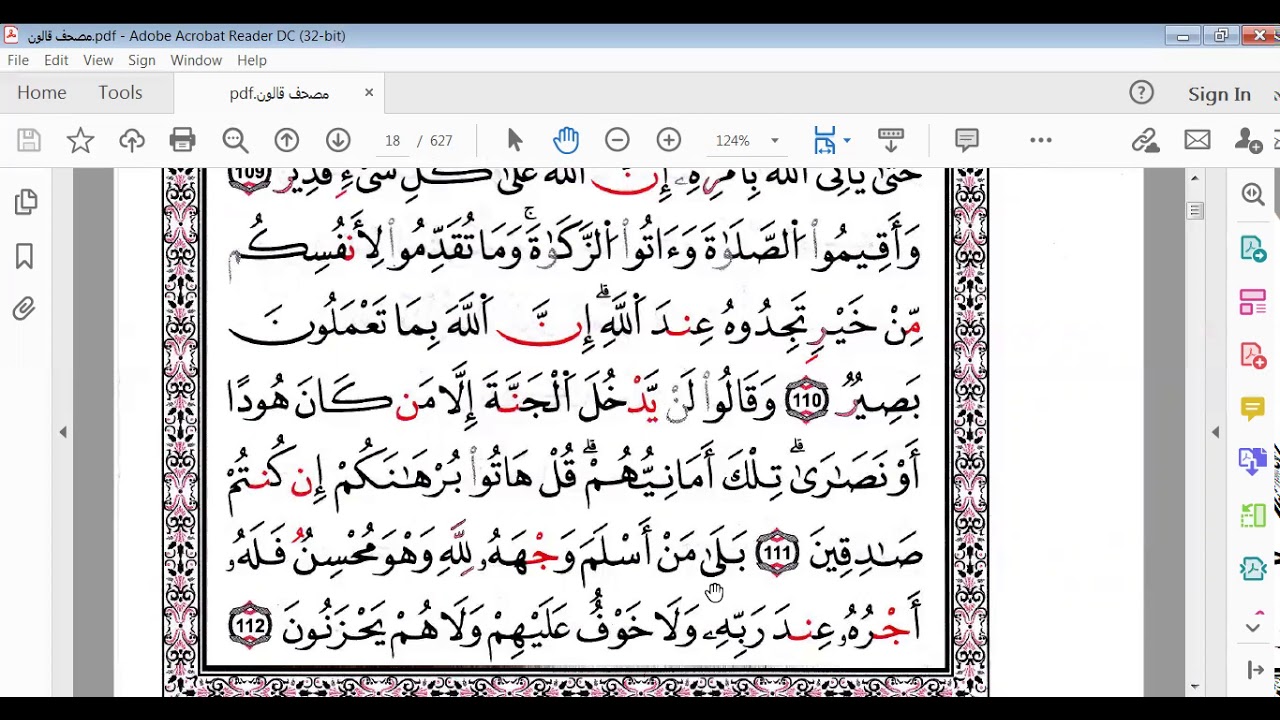 مصحف قالون.pdf - Adobe Acrobat Reader DC (32-bit)
File Edit View Sign Window Help
Home Tools مصحف قالون.pdf × Sign In
18 / 627 124%
حَتَّىٰ يَأْتِيَ اَ۬للَّهُ بِأَمْرِهِۦٓ إِنَّ اَ۬للَّهَ عَلَىٰ كُلِّ شَےْءٖ قَدِيرٞ 109
وَأَقِيمُواْ اُ۬لصَّلَوٰةَ وَءَاتُواْ اُ۬لزَّكَوٰةَۖ وَمَا تُقَدِّمُواْ لِأَنفُسِكُم
مِّنْ خَيْرٖ تَجِدُوهُ عِندَ اَ۬للَّهِۗ إِنَّ اَ۬للَّهَ بِمَا تَعْمَلُونَ
بَصِيرٞ 110 وَقَالُواْ لَنْ يَّدْخُلَ اَ۬لْجَنَّةَ إِلَّا مَن كَانَ هُودًا
أَوْ نَصَٰرَىٰۗ تِلْكَ أَمَانِيُّهُمْۗ قُلْ هَاتُواْ بُرْهَٰنَكُمْ إِن كُنتُمْ
صَٰدِقِينَ 111 بَلَىٰ مَنْ أَسْلَمَ وَجْهَهُۥ لِلَّهِ وَهْوَ مُحْسِنٞ فَلَهُۥ
أَجْرُهُۥ عِندَ رَبِّهِۦ وَلَا خَوْفٌ عَلَيْهِمْ وَلَا هُمْ يَحْزَنُونَ 112